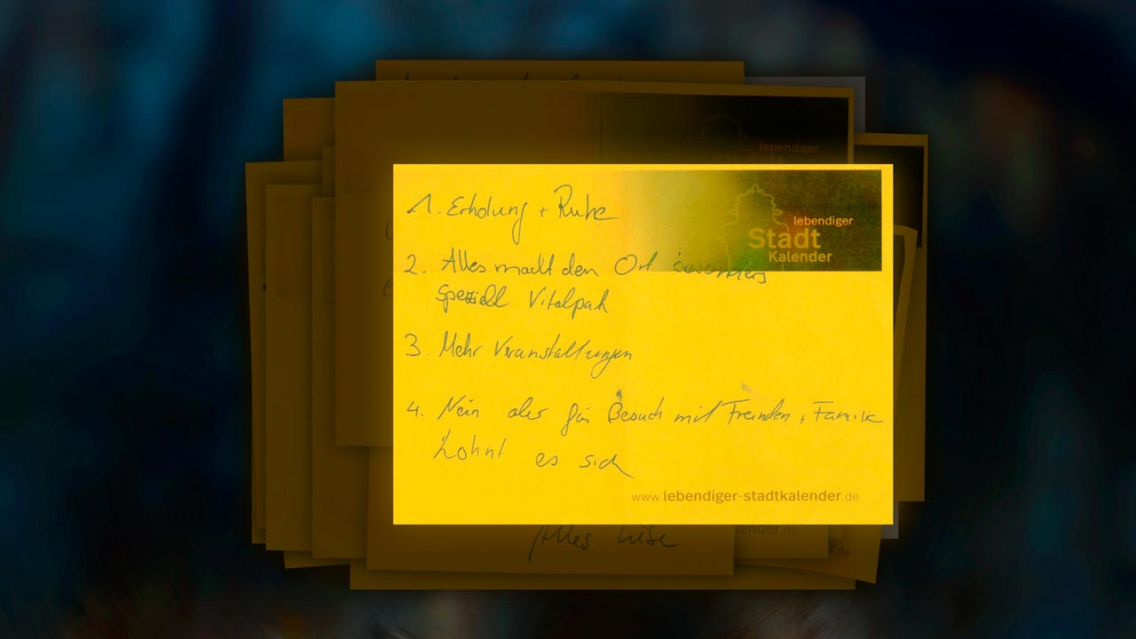 lebendiger
1. Erholung + Ruhe
lebendiger
Stadt
Kalender
2. Alles macht den Ort besonders
speziell Vitalpark
3. Mehr Veranstaltungen
4. Nein aber für Besuch mit Freunden + Familie
Lohnt es sich
www.lebendiger-stadtkalender.de
Alles